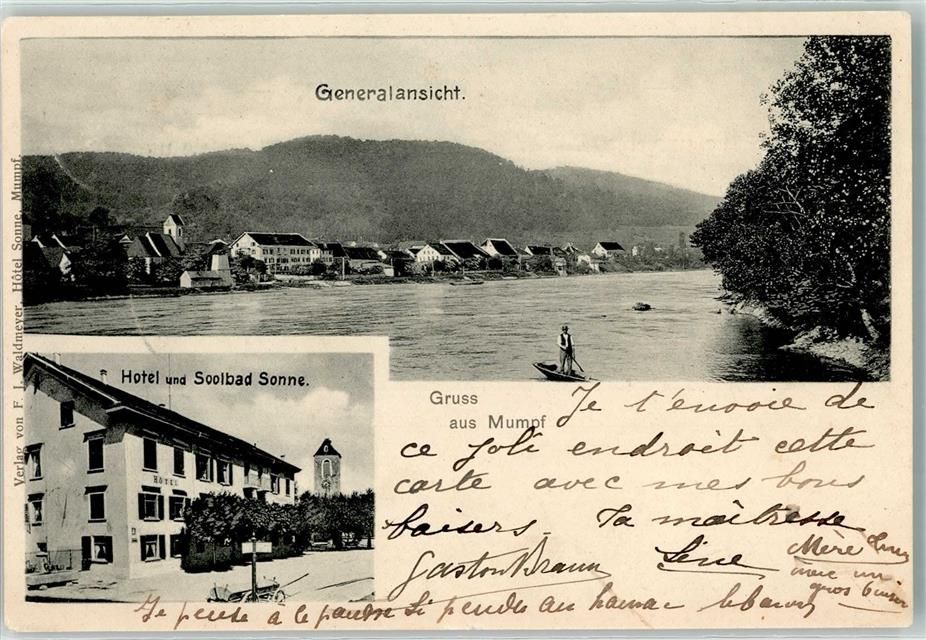 Generalansicht.
Verlag von F. J. Waldmeyer, Hôtel Sonne, Mumpf.
Hotel und Soolbad Sonne.
HÔTEL
Gruss
aus Mumpf
Je t'envoie de
ce joli endroit cette
carte avec mes bons
baisers. Ta maîtresse
Gaston Braun Line
Mère
avec un
gros baiser
Je pense a le pendre